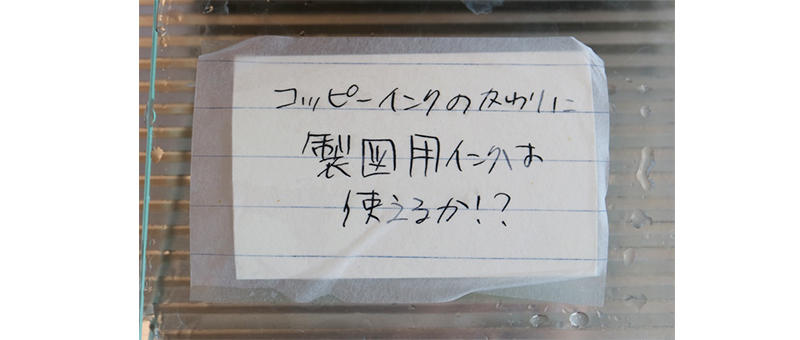 コッピーインクのカわりに
製図用インクは
使えるか!?